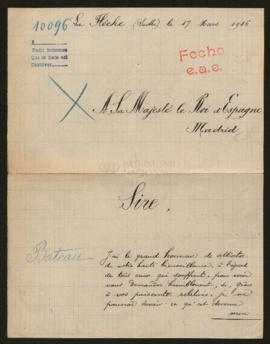 10096
La Flèche (Sarthe) le 17 Mars 1916
Fecho
e.a.e.
A Sa Majesté le Roi d'Espagne
Madrid
Sire,
Bateau
J'ai le grand honneur de solliciter
de votre haute bienveillance, à l'égard
de tous ceux qui souffrent, pour venir
vous demander humblement, si, grâce
à vos puissantes relations, je ne
pourrais savoir ce qu'est devenu
mon